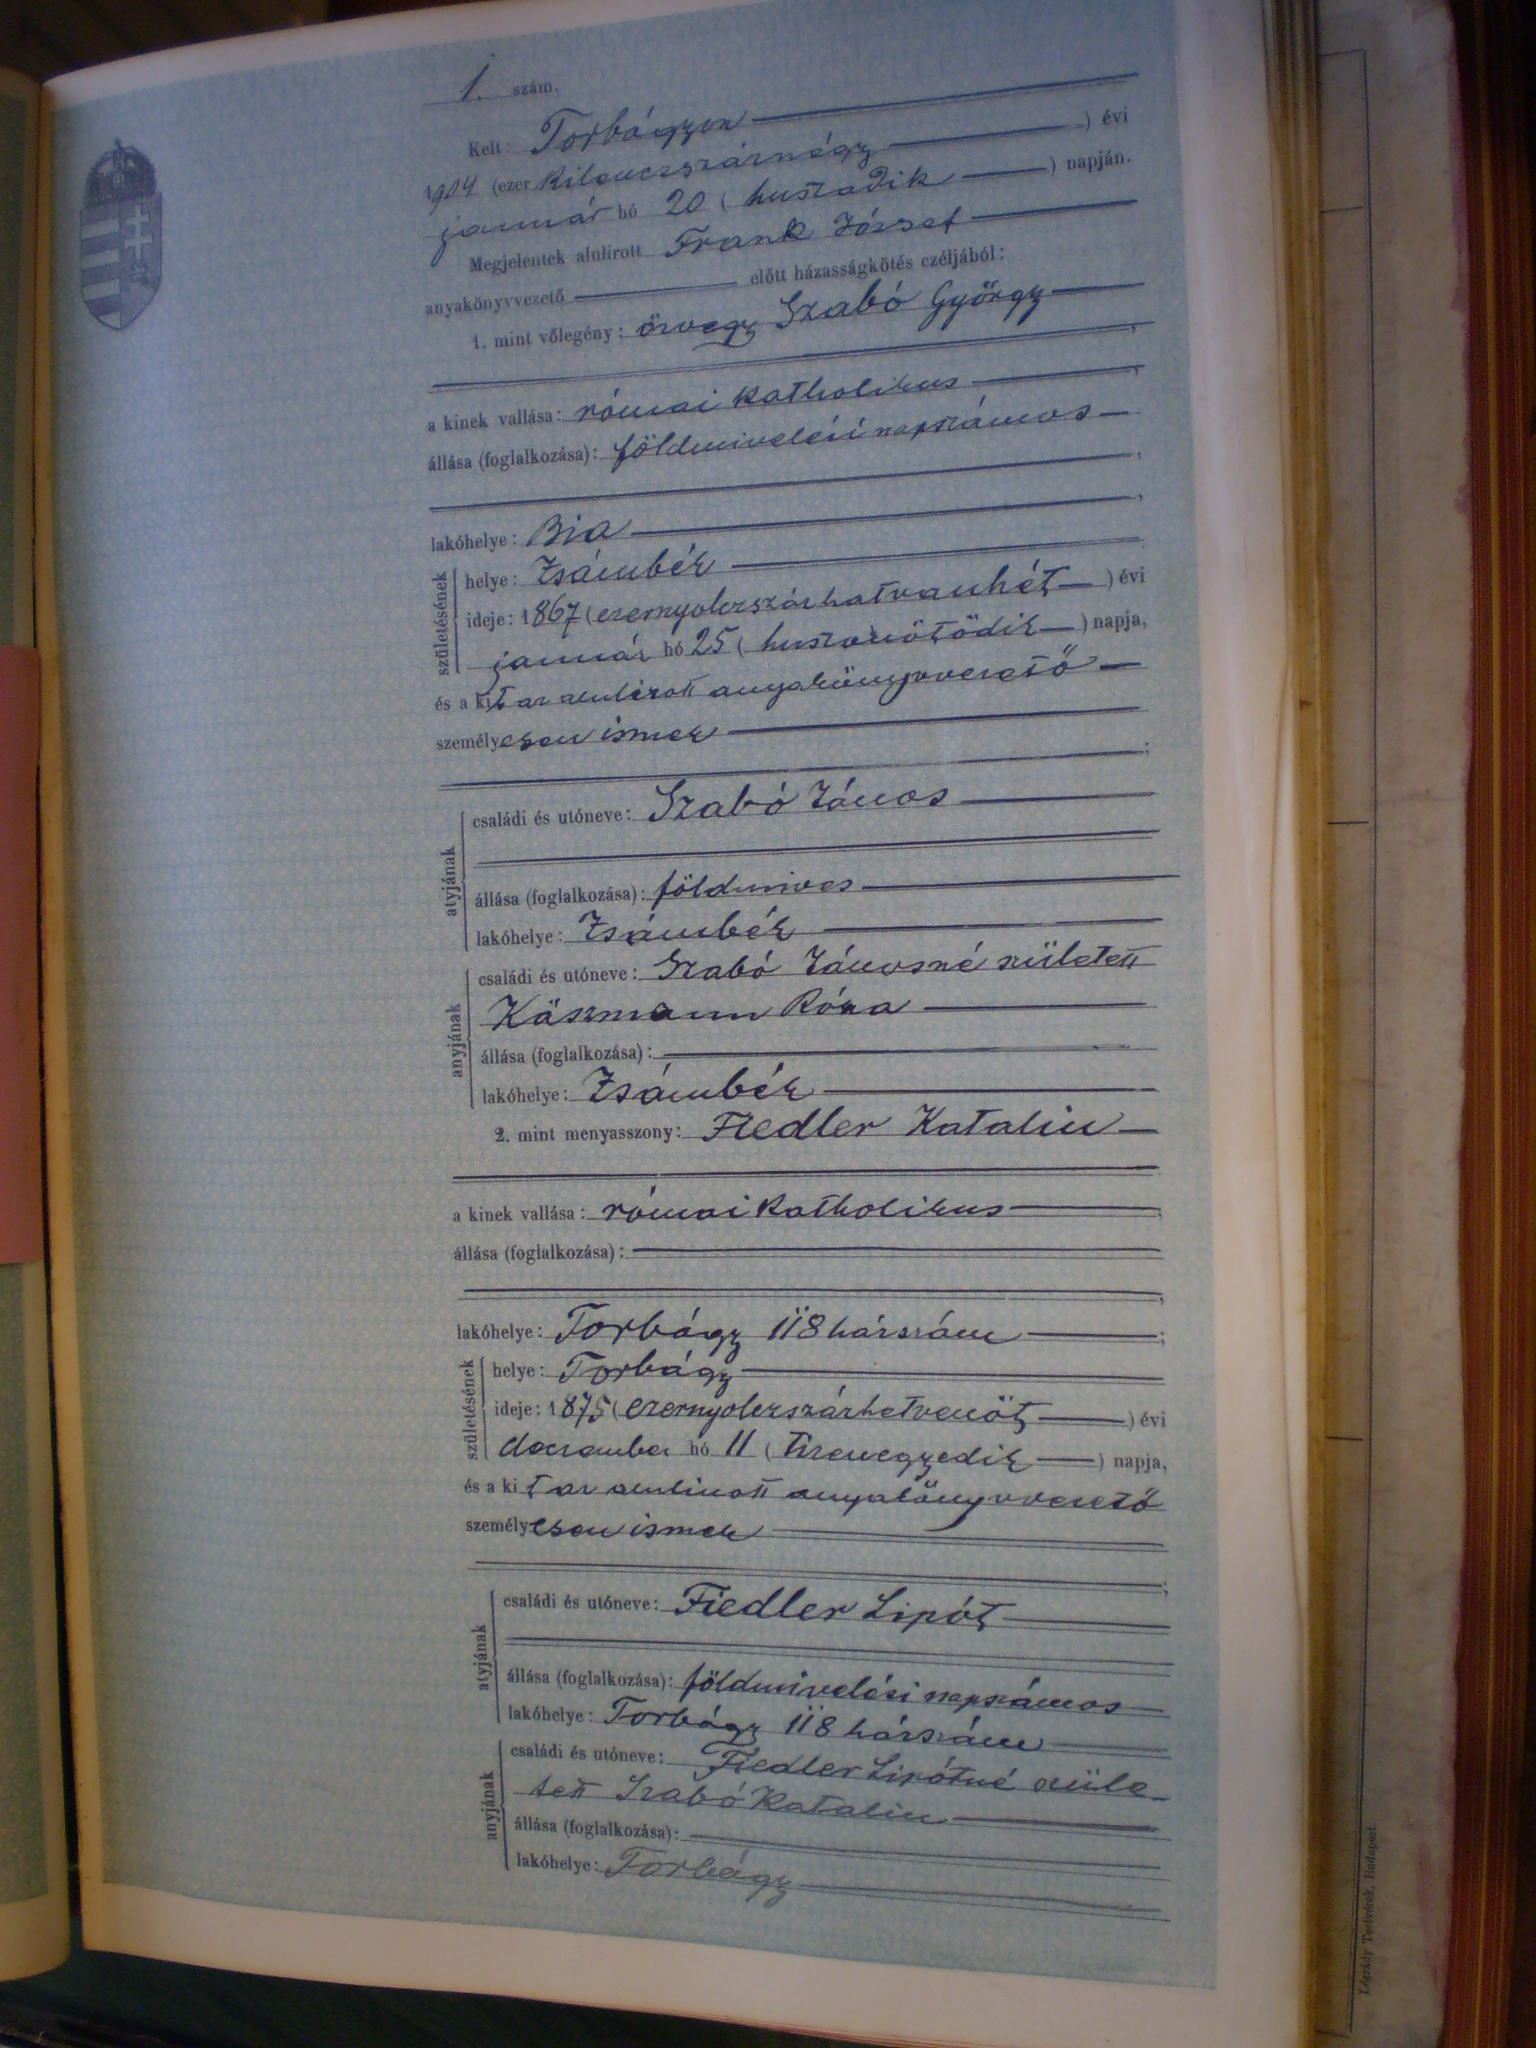 1. szám.
Kelt: Torbágyon
1904 (ezer kilenczszáznégy ) évi
január hó 20 ( huszadik ) napján.
Megjelentek alulirott Frank József
anyakönyvvezető előtt házasságkötés czéljából:
1. mint vőlegény: özvegy Szabó György
,
a kinek vallása: római katholikus ,
állása (foglalkozása): földmivelési napszámos
,
lakóhelye: Bia ,
születésének
helye: Zsámbék
ideje: 1867 (ezernyolczszázhatvanhét ) évi
január hó 25 ( huszonötödik ) napja,
és a kit az alulirott anyakönyvvezető
személyesen ismer
;
atyjának
családi és utóneve: Szabó János
állása (foglalkozása): földmives
lakóhelye: Zsámbék
anyjának
családi és utóneve: Szabó Jánosné született
Käszmann Róza
állása (foglalkozása):
lakóhelye: Zsámbék
2. mint menyasszony: Fiedler Katalin
a kinek vallása: római katholikus ,
állása (foglalkozása):
,
lakóhelye: Torbágy 118 házszám ;
születésének
helye: Torbágy
ideje: 1875 (ezernyolczszázhetvenöt ) évi
deczember hó 11 ( tizenegyedik ) napja,
és a kit az alulirott anyakönyvvezető
személyesen ismer
;
atyjának
családi és utóneve: Fiedler Lipót
állása (foglalkozása): földmivelési napszámos
lakóhelye: Torbágy 118 házszám
anyjának
családi és utóneve: Fiedler Lipótné szüle-
tett Szabó Katalin
állása (foglalkozása):
lakóhelye: Torbágy
Légrády Testvérek, Budapest